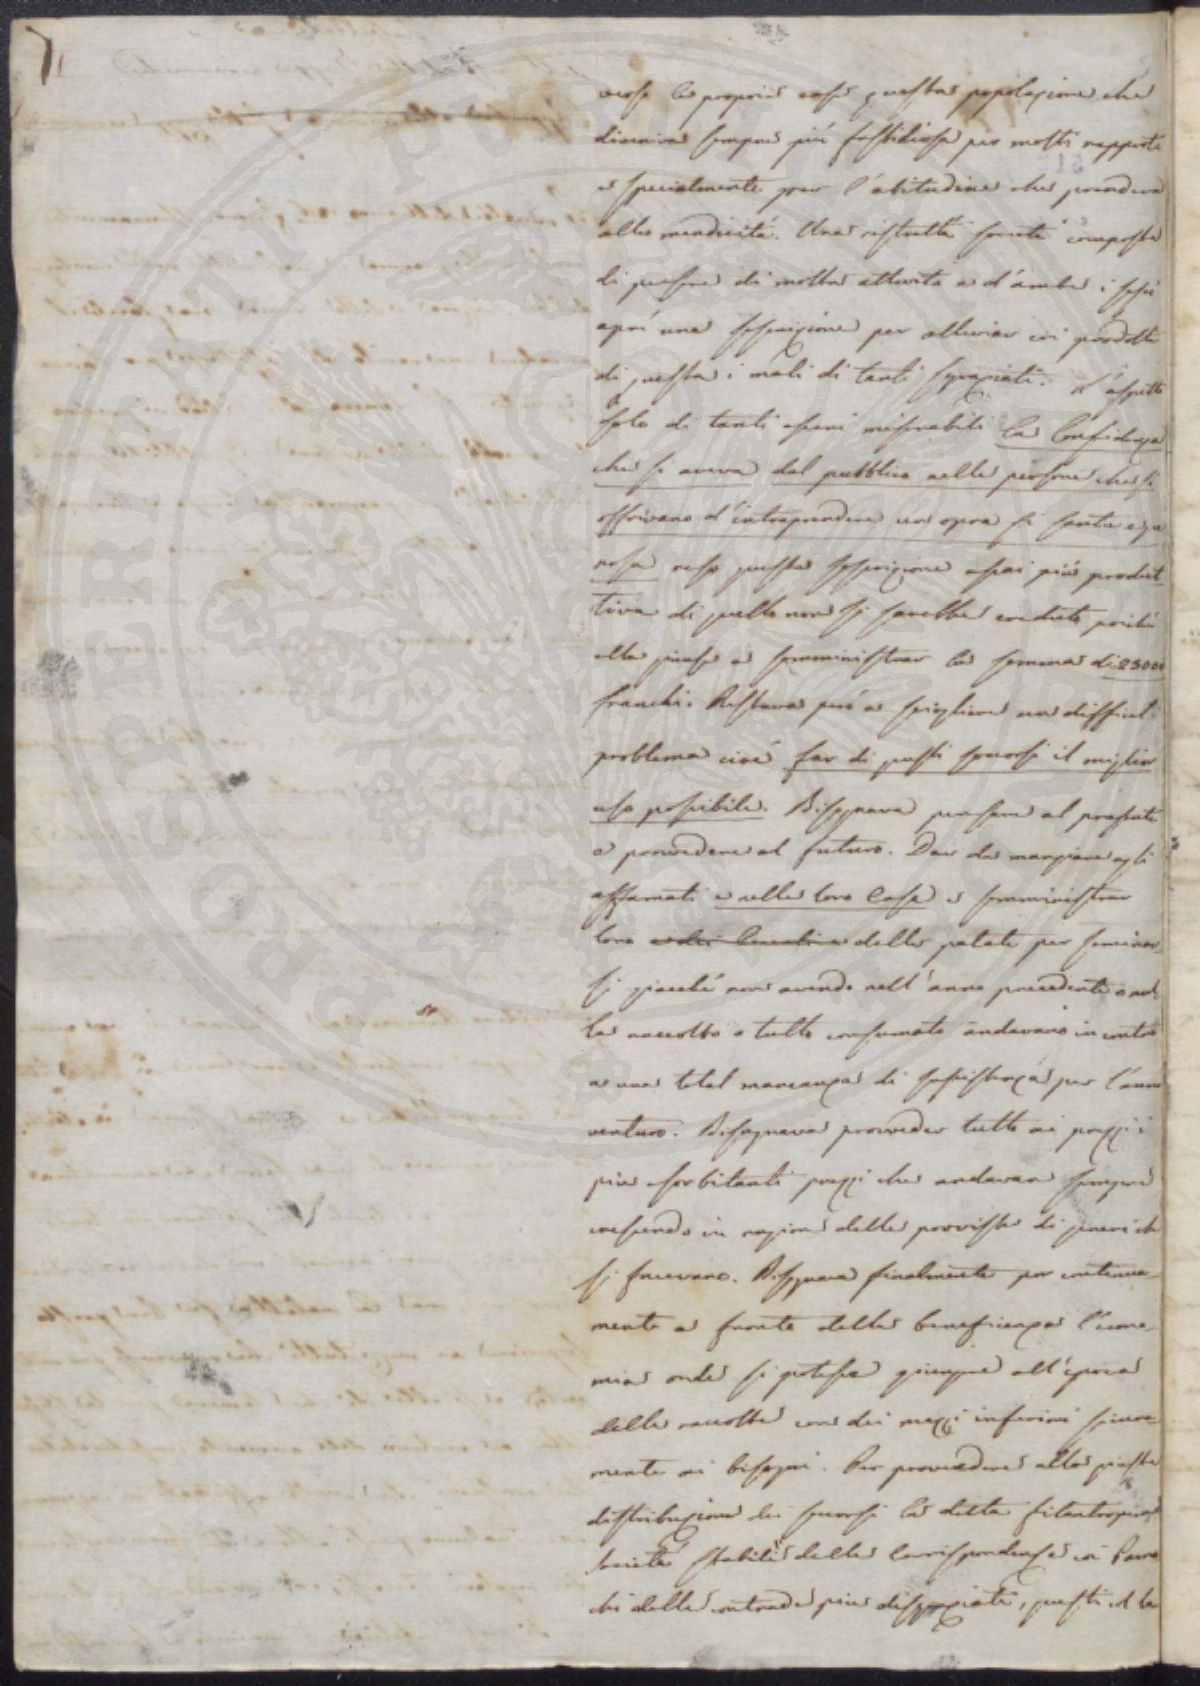 verse le proprie case questa popolazione che
diveniva sempre più fastidiosa per molti rapporti
e specialmente per l'abitudine che prendeva
alla mendicità. Una ristretta società composta
di persone di molta attività e d'ambe i sessi
aprì una soscrizione per alleviar coi prodotti
di questa i mali di tanti sgraziati. L'aspetto
solo di tanti esseri miserabili la Confidenza
che si aveva dal pubblico nelle persone che si
offrivano d'intraprendere un opra si santa e ge
rosa rese questa soscrizione assai più produt-
tiva di quello non si sarebbe creduto poiché
ella giunse a somministrar la somma di 25000
franchi. Restava però a sciogliere un difficil
problema cioè far di questi soccorsi il miglior
uso possibile. Bisognava pensare al presente
e provvedere al futuro. Dar da mangiare agli
affamati e nelle loro Case e somministrar
loro delle patate per seminar-
si giacché non avendo nell'anno precedente o nul
la raccolto o tutto consumato andavano in contro
a una total mancanza di sussistenza per l'anno
venturo. Bisognava provveder tutto ai prezzi i
più esorbitanti prezzi che andavan sempre
crescendo in ragione delle provviste di generi che
si facevano. Bisognava finalmente por continua-
mente a fronte della beneficenza l'econo-
mia onde si potesse giungere all'epoca
delle raccolte con dei mezzi inferiori sicura-
mente ai bisogni. Per provvedere alla giusta
distribuzione dei soccorsi la detta filantropica
Società stabilì delle Corrispondenze coi Parro
chi delle contrade più disgraziate, questi ed le